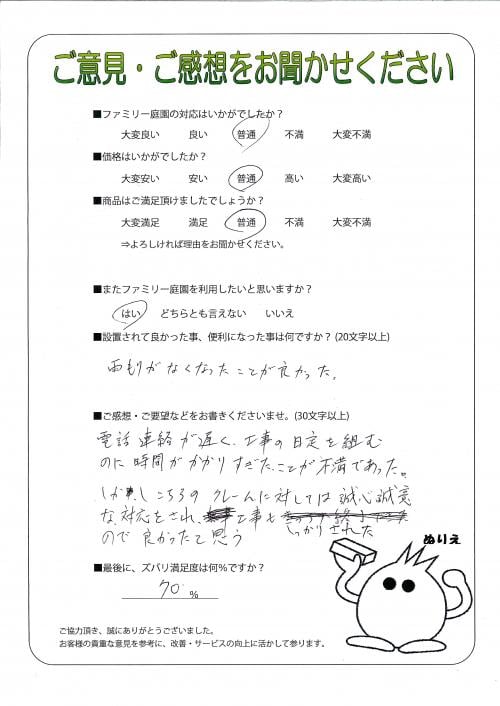 ご意見・ご感想をお聞かせください
■ファミリー庭園の対応はいかがでしたか？
大変良い 良い 普通 不満 大変不満
■価格はいかがでしたか？
大変安い 安い 普通 高い 大変高い
■商品はご満足頂けましたでしょうか？
大変満足 満足 普通 不満 大変不満
⇒よろしければ理由をお聞かせください。
■またファミリー庭園を利用したいと思いますか？
はい どちらとも言えない いいえ
■設置されて良かった事、便利になった事は何ですか？(20文字以上)
雨もりがなくなったことが良かった。
■ご感想・ご要望などをお書きくださいませ。(30文字以上)
電話連絡が遅く、工事の日定を組む
のに時間がかかりすぎたことが不満であった。
しかし、こちらのクレームに対しては誠心誠意
な対応をされ、工事も しっかりされた
ので良かったと思う
ぬりえ
■最後に、ズバリ満足度は何%ですか？
70 %
ご協力頂き、誠にありがとうございました。
お客様の貴重な意見を参考に、改善・サービスの向上に活かして参ります。